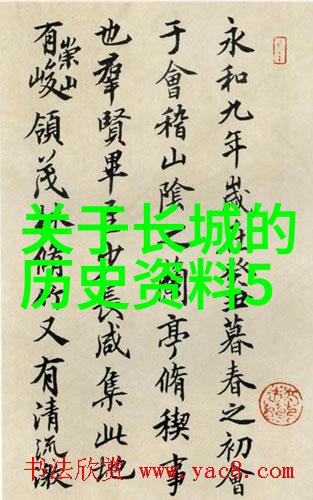 永和九年歲在癸丑暮春之初會
于會稽山陰之蘭亭脩禊事
也羣賢畢至少長咸集此地
有崇山峻領茂林脩竹又有清流激
关于长城的
历史资料5
书法欣赏 www.yac8.com